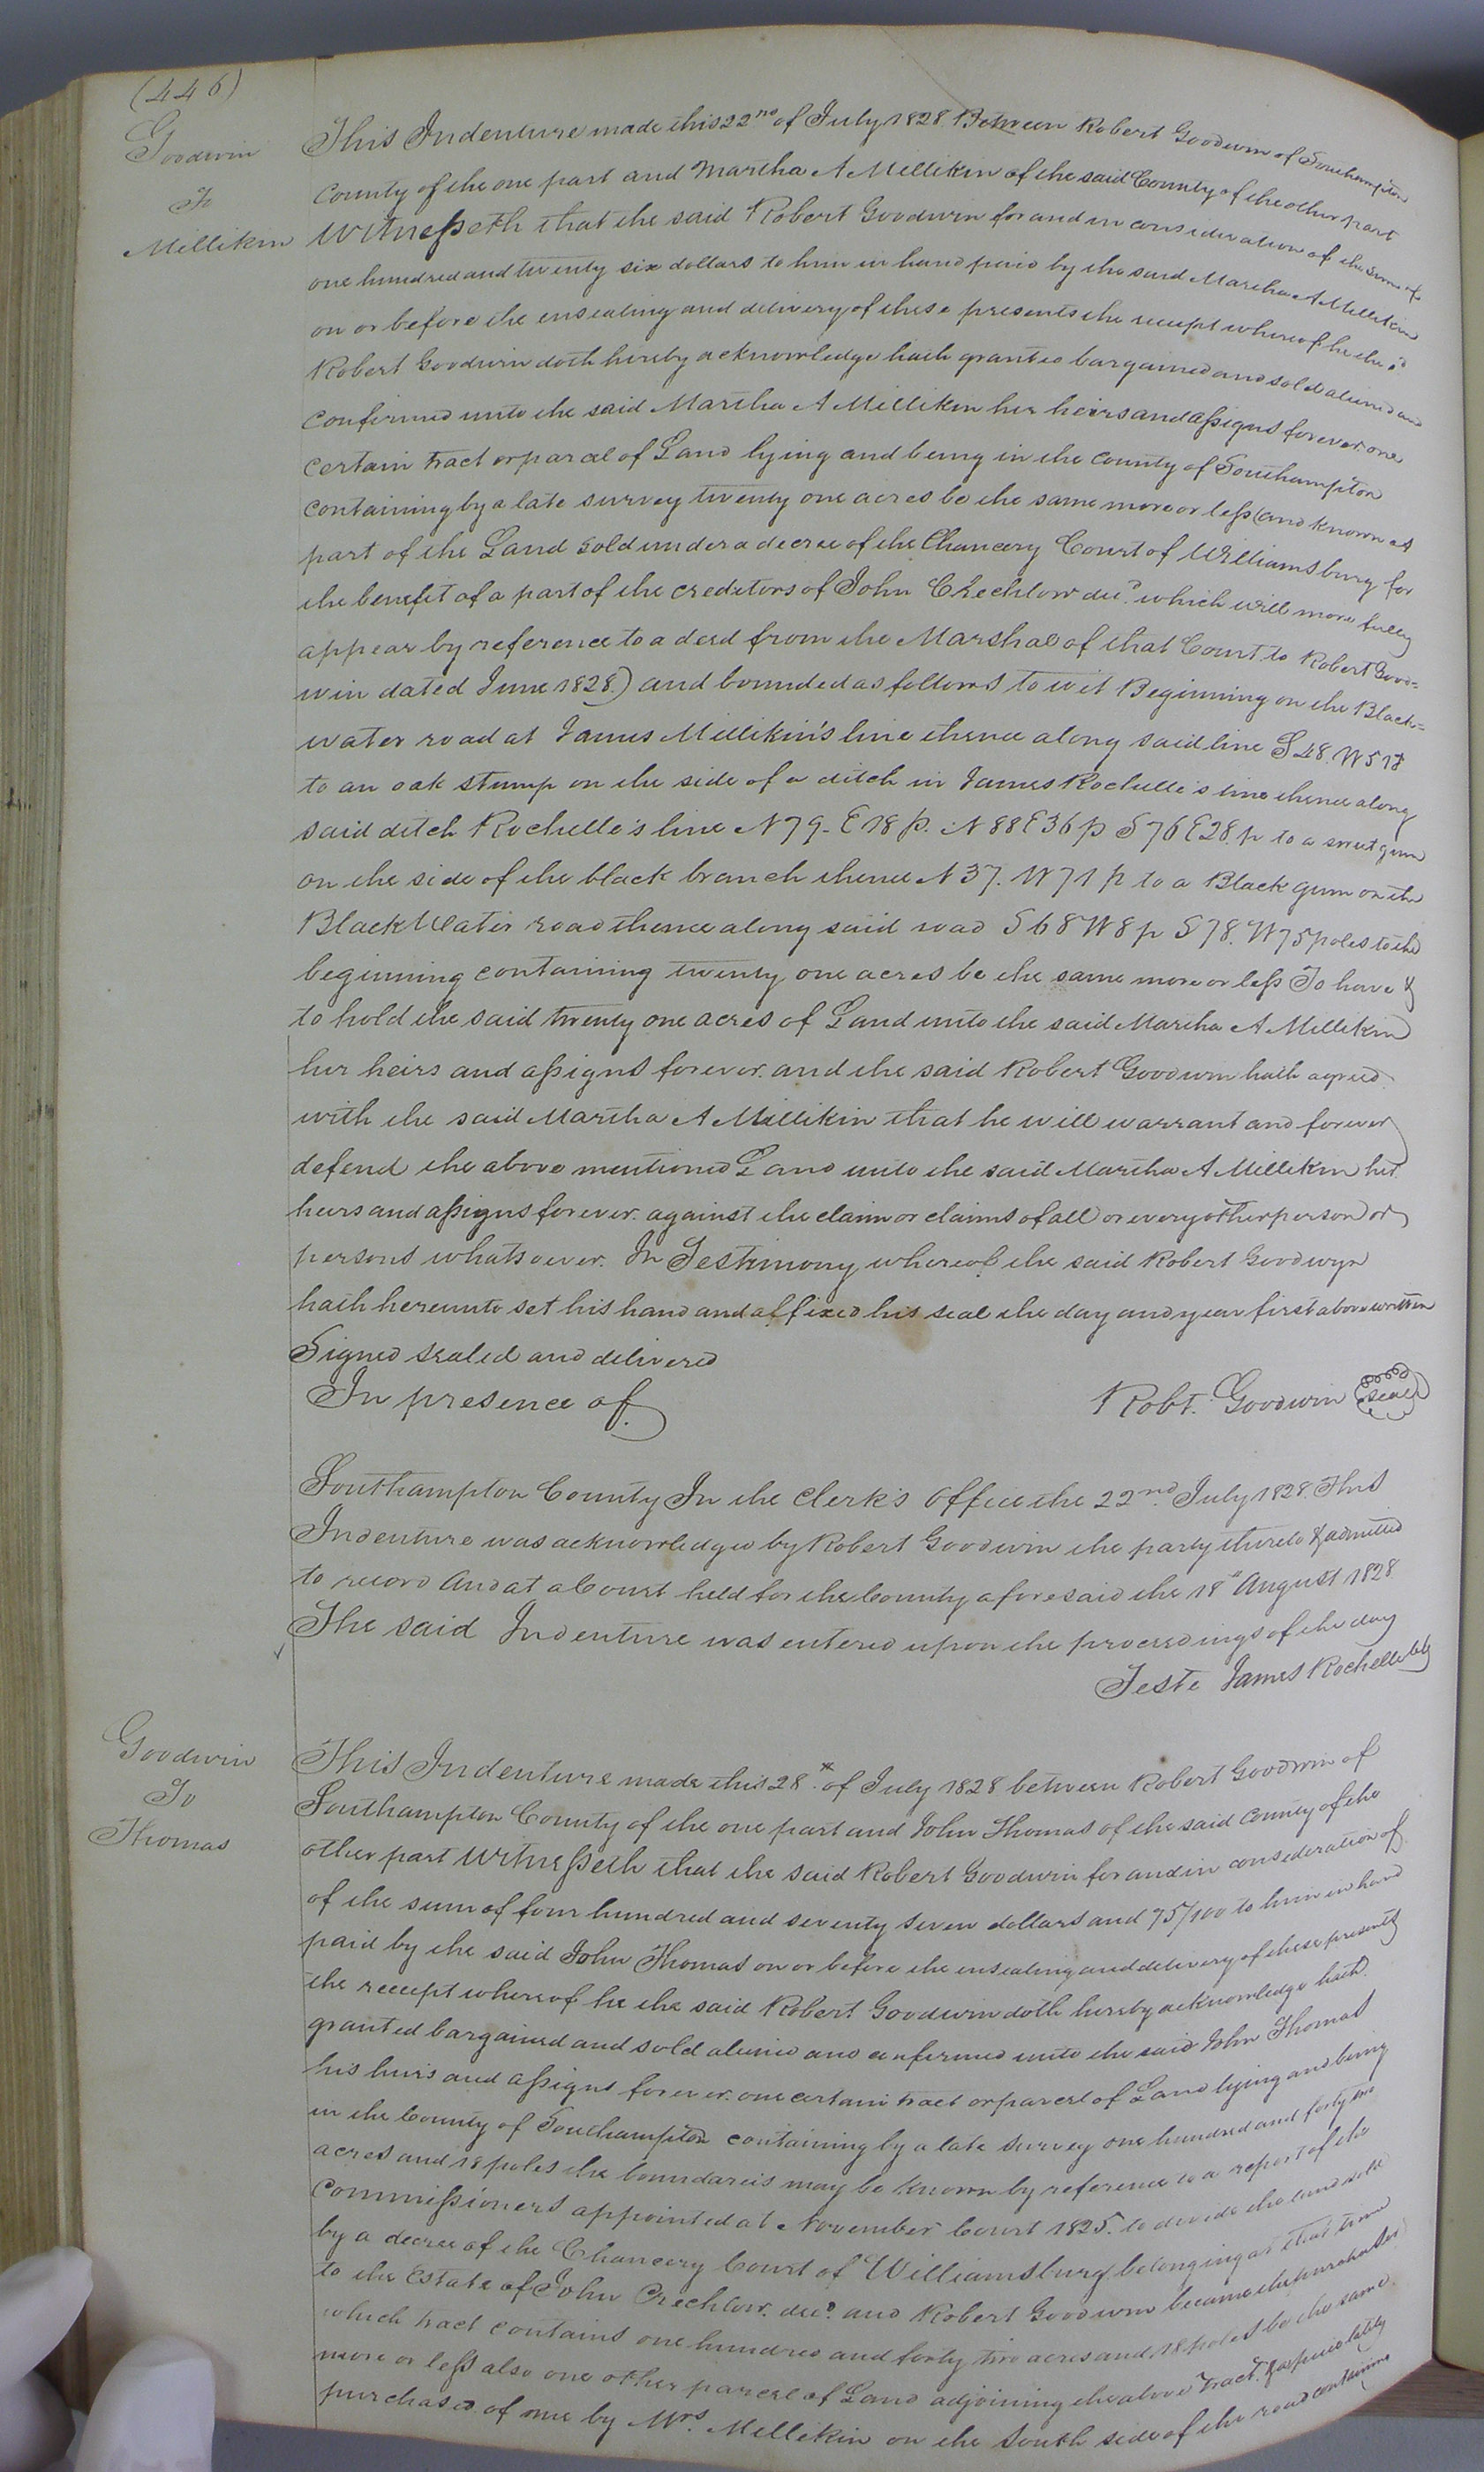 (446)
Goodwin
To
Millikin
This Indenture made this 22nd of July 1828 Between Robert Goodwin of Southampton
County of the one part and Martha A Millikin of the said County of the other part
Witnesseth that the said Robert Goodwin for and in consideration of the sum of
one hundred and twenty six dollars to him in hand paid by the said Martha A Millikin
on or before the ensealing and delivery of these presents the receipt whereof he the sd
Robert Goodwin doth hereby acknowledge hath granted bargained and sold aliened and
confirmed unto the said Martha A Millikin her heirs and assigns forever. one
certain tract or parcel of Land lying and being in the County of Southampton
containing by a late survey twenty one acres be the same more or less (and known as
part of the Land sold under a decree of the Chancery Court of Williamsburg for
the benefit of a part of the creditors of John Crechlow decd. which will more fully
appear by reference to a deed from the Marshal of that Court to Robert Good=
win dated June 1828.) and bounded as follows to wit Beginning on the Black=
water road at James Millikin's line thence along said line S 48. W 51 p
to an oak stump on the side of a ditch in James Rochelle's line thence along
said ditch Rochelle's line N 79. E 18 p. N 88 E 36 p S 76 E 28. p to a sweet gum
on the side of the black branch thence N 37. W 71 p to a Black gum on the
Black Water road thence along said road S 68 W 8 p S 78. W 75 poles to the
beginning containing twenty one acres be the same more or less To have &
to hold the said twenty one acres of Land unto the said Martha A Millikin
her heirs and assigns forever. and the said Robert Goodwin hath agreed
with the said Martha A Millikin that he will warrant and forever
defend the above mentioned Land unto the said Martha A Millikin her
heirs and assigns forever. against the claim or claims of all or every other person or
persons whatsoever. In Testimony whereof the said Robert Goodwyn
hath hereunto set his hand and affixed his seal the day and year first above written
Signed sealed and delivered
In presence of. Robt. Goodwin seal
Southampton County In the Clerk's Office the 22nd. July 1828. This
Indenture was acknowledged by Robert Goodwin the party thereto & admitted
to record And at a Court held for the County aforesaid the 18th August 1828.
The said Indenture was entered upon the proceedings of the day
Teste James Rochelle Clk
Goodwin
To
Thomas
This Indenture made this 28th. of July 1828 between Robert Goodwin of
Southampton County of the one part and John Thomas of the said County of the
other part Witnesseth that the said Robert Goodwin for and in consideration of
of the sum of four hundred and seventy seven dollars and 75/100 to him in hand
paid by the said John Thomas on or before the ensealing and delivery of these presents
the receipt whereof he the said Robert Goodwin doth hereby acknowledge hath
granted bargained and sold aliened and confirmed unto the said John Thomas
his heirs and assigns forever. one certain tract or parcel of Land lying and being
in the County of Southampton containing by a late survey one hundred and forty two
acres and 18 poles the boundareis may be known by reference to a report of the
Commissioners appointed at November Court 1825. to devide the land sold
by a decree of the Chancery Court of Williamsburg belonging at that time
to the Estate of John Crechlow. decd. and Robert Goodwin became the purchaser
which tract contains one hundred and forty two acres and 18 poles be the same
more or less also one other parcel of Land adjoining the above tract. & a piece lately
purchased of me by Mrs. Millikin on the South side of the road containing